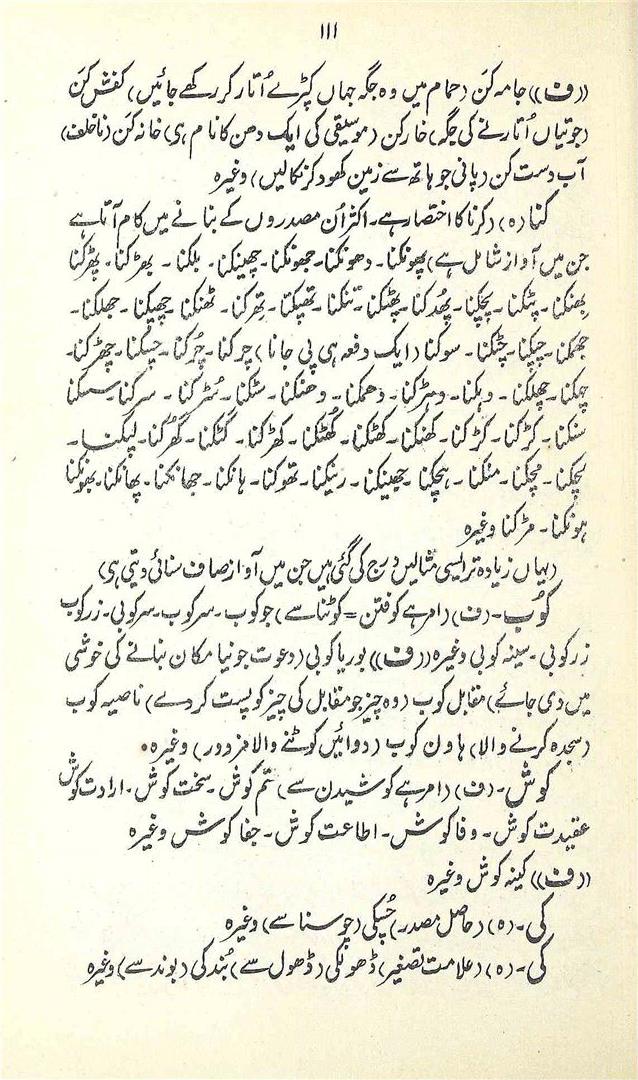 ۱۱۱
((ف)) جامہ کَن (حمام میں وہ جگہ جہاں کپڑے اُتار کر رکھے جائیں) کفش کَن
(جوتیاں اُتارنے کی جگہ) خارکن (موسیقی کی ایک دھن کا نام ہی) خانہ کَن (ناخلف)
آب دست کن (پانی جو ہاتھ سے زمین کھود کر نکالیں) وغیرہ
کنا (ہ) (کرنا کا اختصار ہے۔ اکثر اُن مصدروں کے بنانے میں کام آتا ہے
جن میں آواز شامل ہے) پھونکنا۔ دھونکنا۔ جھونکنا۔ چھینکنا۔ بلکنا۔ بھڑکنا۔ پھڑکنا
بھنکنا۔ پٹکنا۔ پچکنا۔ پھُدکنا۔ پھٹکنا۔ تنکنا۔ تھپکنا۔ تھرکنا۔ ٹھنکنا۔ جھپکنا۔ جھلکنا۔
جھمکنا۔ چپکنا۔ چٹکنا۔ سوکنا (ایک دفعہ ہی پی جانا) چرکنا۔ چُرکنا۔ چسکنا۔ چھڑکنا۔
چہکنا۔ چھلکنا۔ دہکنا۔ دھڑکنا۔ دھمکنا۔ دھنکنا۔ سٹکنا۔ سُڑکنا۔ سرکنا۔ سسکنا
سنکنا۔ کڑکنا۔ کُڑکنا۔ کھنکنا۔ کھٹکنا۔ کھُٹکنا۔ کھڑکنا۔ گٹکنا۔ گھُرکنا۔ لپکنا۔
لچکنا۔ مچکنا۔ منکنا۔ ہچکنا۔ جھینکنا۔ رینکنا۔ تھوکنا۔ ہانکنا۔ جھانکنا۔ پھانکنا۔ بھونکنا
ہونکنا۔ مڑکنا وغیرہ
(یہاں زیادہ تر ایسی مثالیں درج کی گئی ہیں جن میں آواز صاف سنائی دیتی ہی)
کُوب۔ (ف) (امر ہے کوفتن = کوٹنا سے) جوکوب۔ سرکوب۔ سرکوبی۔ زرکوب
زرکوبی۔ سینہ کوبی وغیرہ ((ف)) بوریا کوبی (دعوت جو نیا مکان بنانے کی خوشی
میں دی جائے) مقابل کوب (وہ چیز جو مقابل کی چیز کو پست کردے) ناصیہ کوب
(سجدہ کرنے والا) ہاون کوب (دوائیں کوٹنے والا مزدور) وغیرہ۔
کوش۔ (ف) (امر ہے کوشیدن سے) ستم کوش۔ سخت کوش۔ ارادت کوش
عقیدت کوش۔ وفا کوش۔ اطاعت کوش۔ جفا کوش وغیرہ
((ف)) کینہ کوش وغیرہ
کی۔ (ہ) (حاصل مصدر) چُسکی (چوسنا سے) وغیرہ
کی۔ (ہ) (علامت تصغیر) ڈھولکی (ڈھول سے) بُندکی (بوند سے) وغیرہ